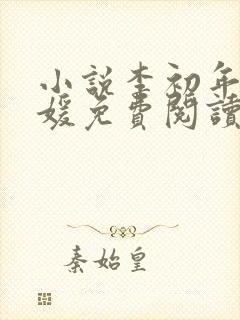 小說李初年
媛免費閱讀
秦始皇